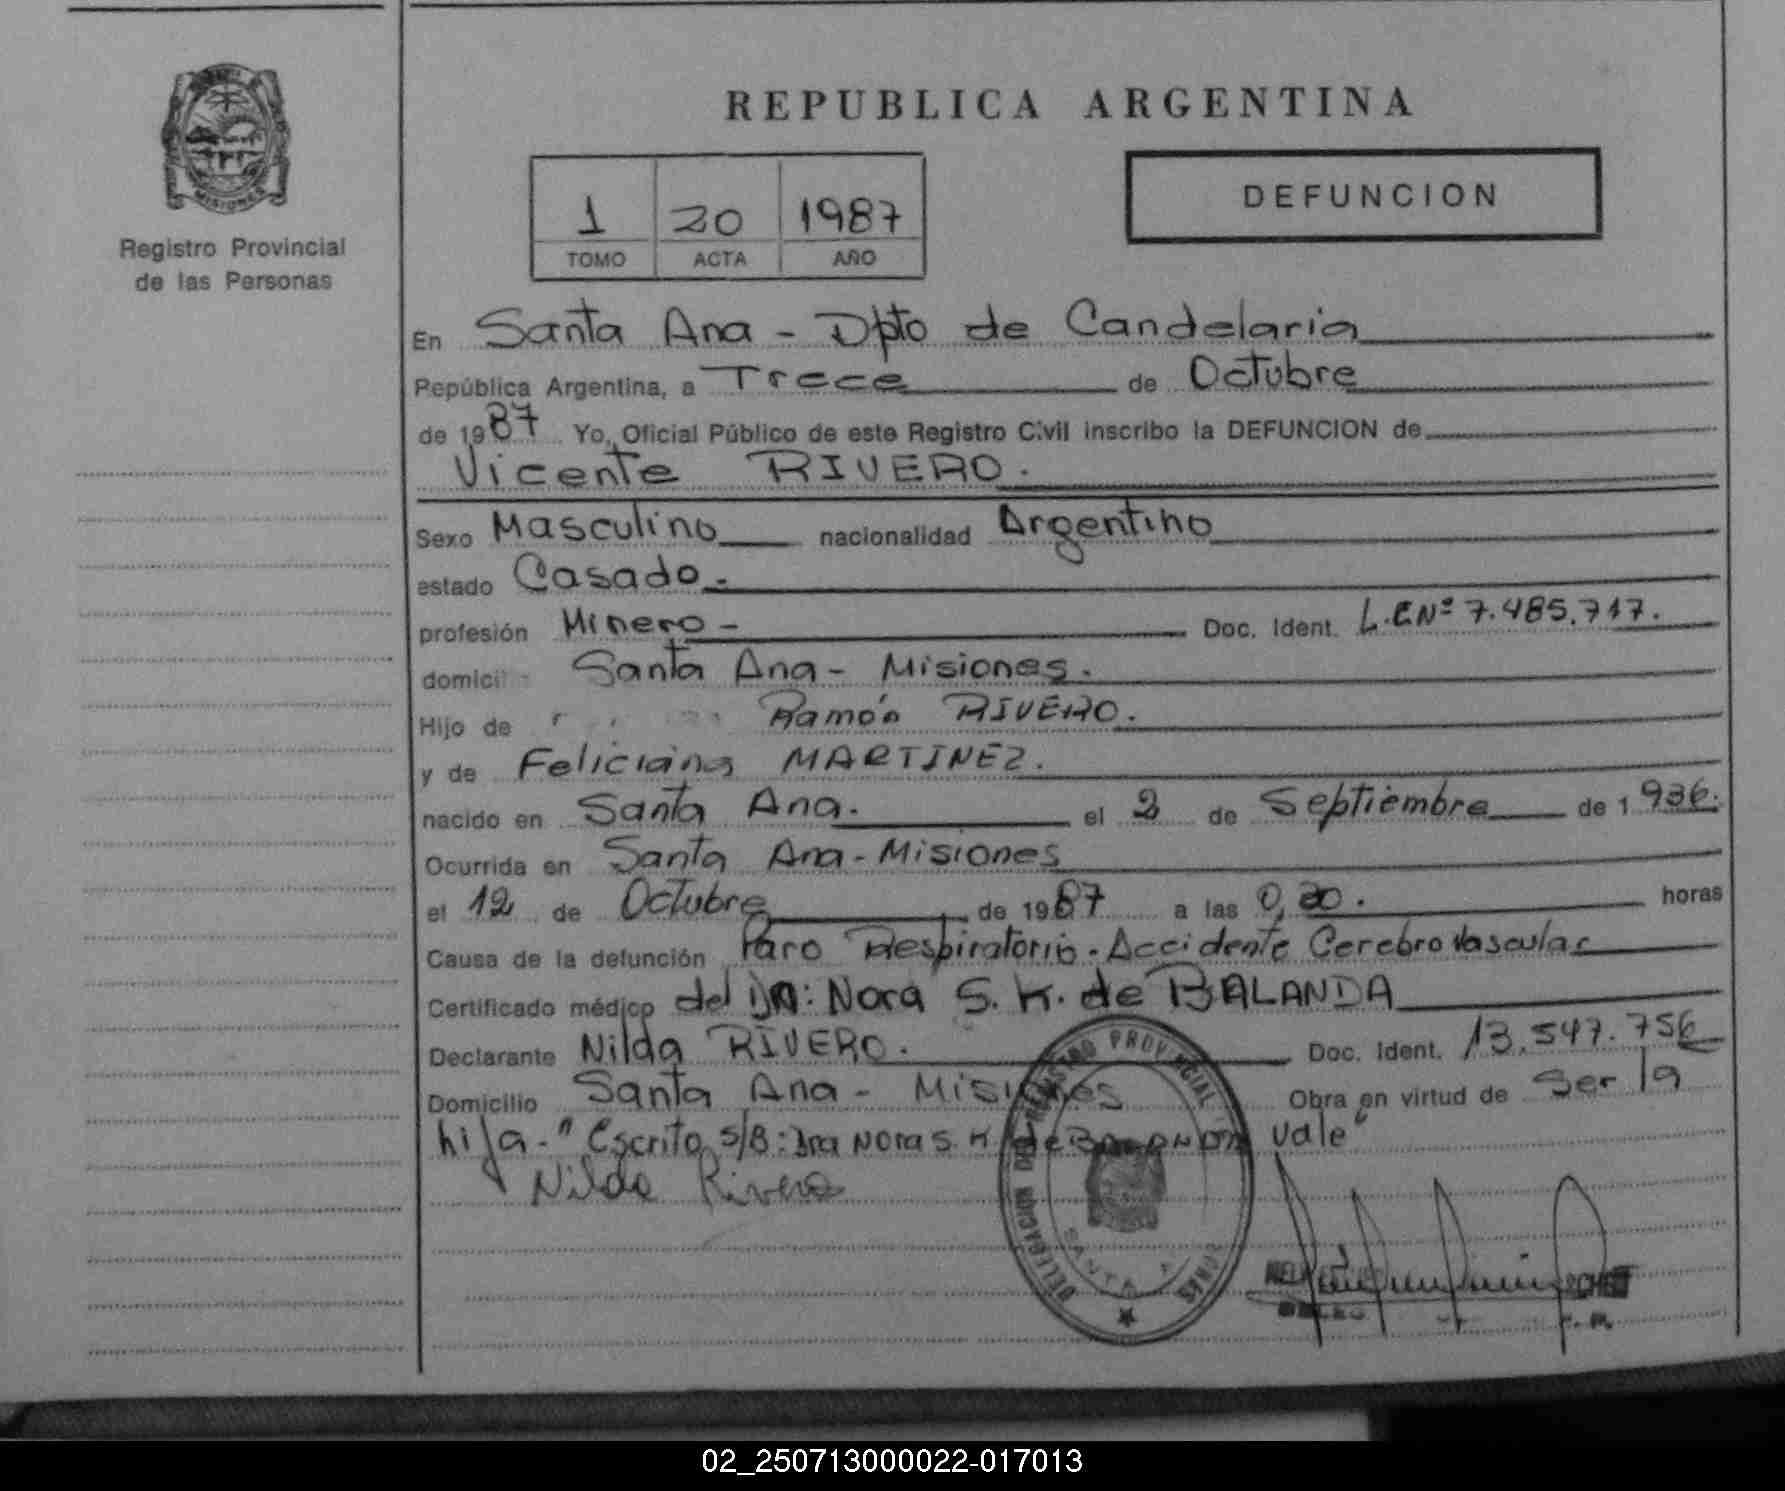 REPUBLICA ARGENTINA
MISIONES
Registro Provincial
de las Personas
1 20 1987
TOMO ACTA AÑO
DEFUNCION
En Santa Ana - Dpto de Candelaria
República Argentina, a Trece de Octubre
de 1987 Yo, Oficial Público de este Registro Civil inscribo la DEFUNCION de
Vicente RIVERO.
Sexo Masculino nacionalidad Argentino
estado Casado.
profesión Minero - Doc. Ident. L.E Nº 7.485.717.
Santa Ana - Misiones.
Hijo de Ramón RIVERO.
y de Feliciana MARTINEZ.
nacido en Santa Ana. el 2 de Septiembre de 1.936.
Ocurrida en Santa Ana - Misiones
el 12 de Octubre de 1987 a las horas
Causa de la defunción Paro Respiratorio. Accidente Cerebro Vascular
Certificado médico del Nora S. K. de BALANDA
Declarante Nilda RIVERO. Doc. Ident. 13.547.756
Domicilio Santa Ana - Misiones Obra en virtud de Ser la
hija. - "Escrito S/B: Dra Nora S. K. de BALANDA Vale"
Nilda Rivero
DELEGACION DEL REGISTRO PROVINCIAL
SANTA
02_250713000022-017013